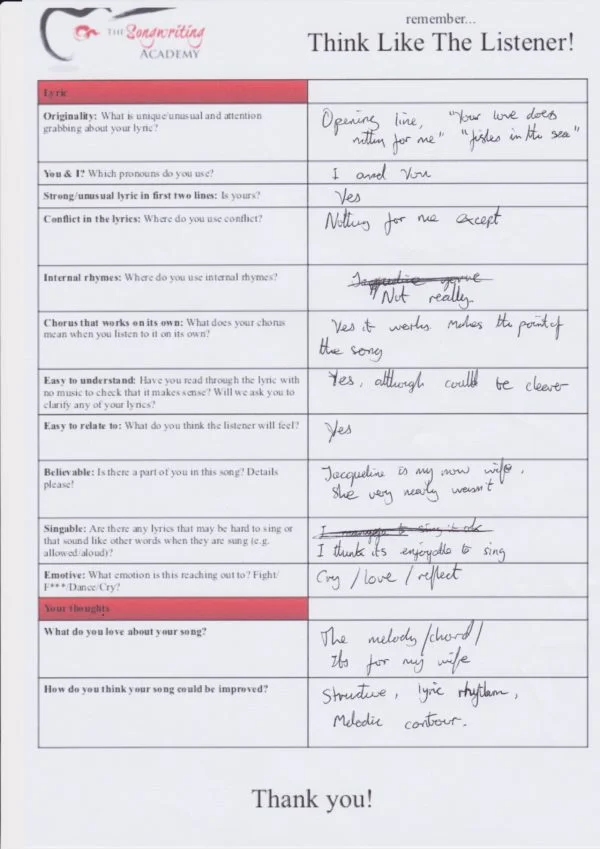 remember...
THE Songwriting
ACADEMY
Think Like The Listener!
Lyric
Originality: What is unique/unusual and attention
grabbing about your lyric?
Opening line, "Your love does
nothing for me" "fishes in the sea"
You & I? Which pronouns do you use?
I and You
Strong/unusual lyric in first two lines: Is yours?
Yes
Conflict in the lyrics: Where do you use conflict?
Nothing for me except
Internal rhymes: Where do you use internal rhymes?
Jacqueline
Not really.
Chorus that works on its own: What does your chorus
mean when you listen to it on its own?
Yes it works. Makes the point of
the song
Easy to understand: Have you read through the lyric with
no music to check that it makes sense? Will we ask you to
clarify any of your lyrics?
Yes, although could be clearer
Easy to relate to: What do you think the listener will feel?
Yes
Believable: Is there a part of you in this song? Details
please!
Jacqueline is my now wife,
She very nearly wasn't
Singable: Are there any lyrics that may be hard to sing or
that sound like other words when they are sung (e.g.
allowed/aloud)?
I to sing it ok
I think its enjoyable to sing
Emotive: What emotion is this reaching out to? Fight/
F***/Dance/Cry?
Cry/love/reflect
Your thoughts
What do you love about your song?
The melody/chord/
Its for my wife
How do you think your song could be improved?
Structure, lyric rhythm,
Melodic contour.
Thank you!